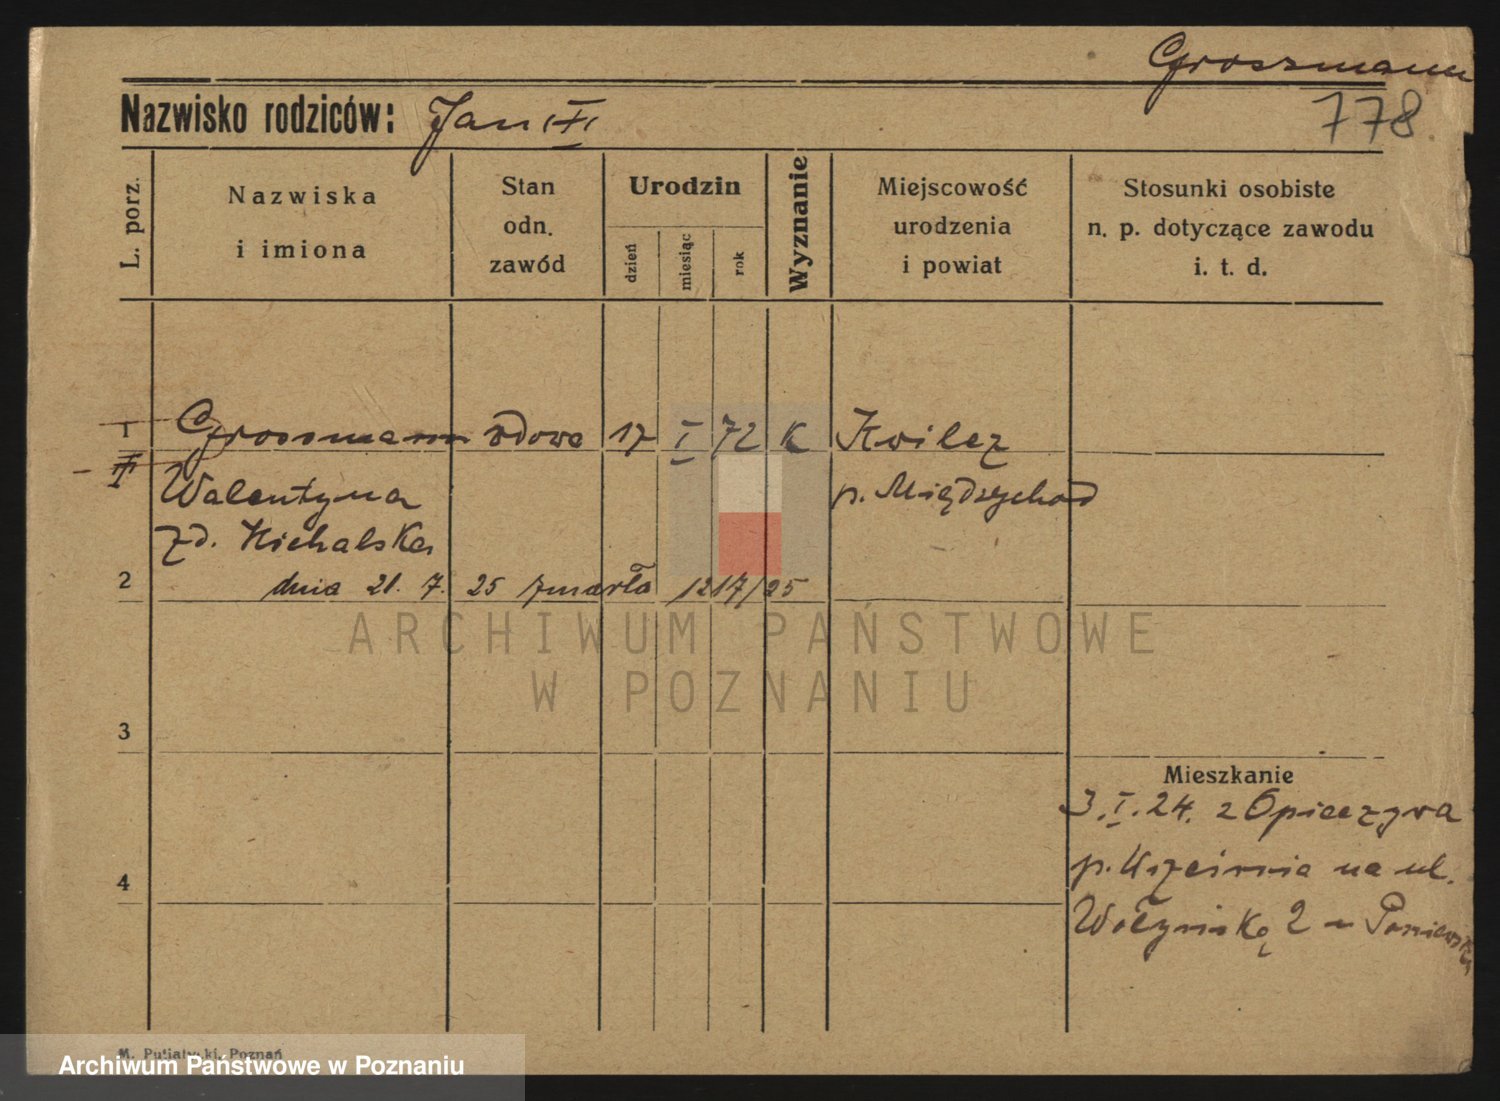 Grossmann
778.
Nazwisko rodziców: Jan
L. porz.
Nazwiska
i imiona
Stan
odn.
zawód
Urodzin
dzień
miesiąc
rok
Wyznanie
Miejscowość
urodzenia
i powiat
Stosunki osobiste
n. p. dotyczące zawodu
i. t. d.
1 Grossmann wdowa 17 I 72 K Kwilcz
Walentyna p. Międzychod
zd. Michalska
2 dnia 21. 7. 25 zmarła 1217/25
ARCHIWUM PAŃSTWOWE
W POZNANIU
3
Mieszkanie
3.I.24. z
p. na ul.
4
Wołyńską 2 u
M. Putiatycki, Poznań
Archiwum Państwowe w Poznaniu